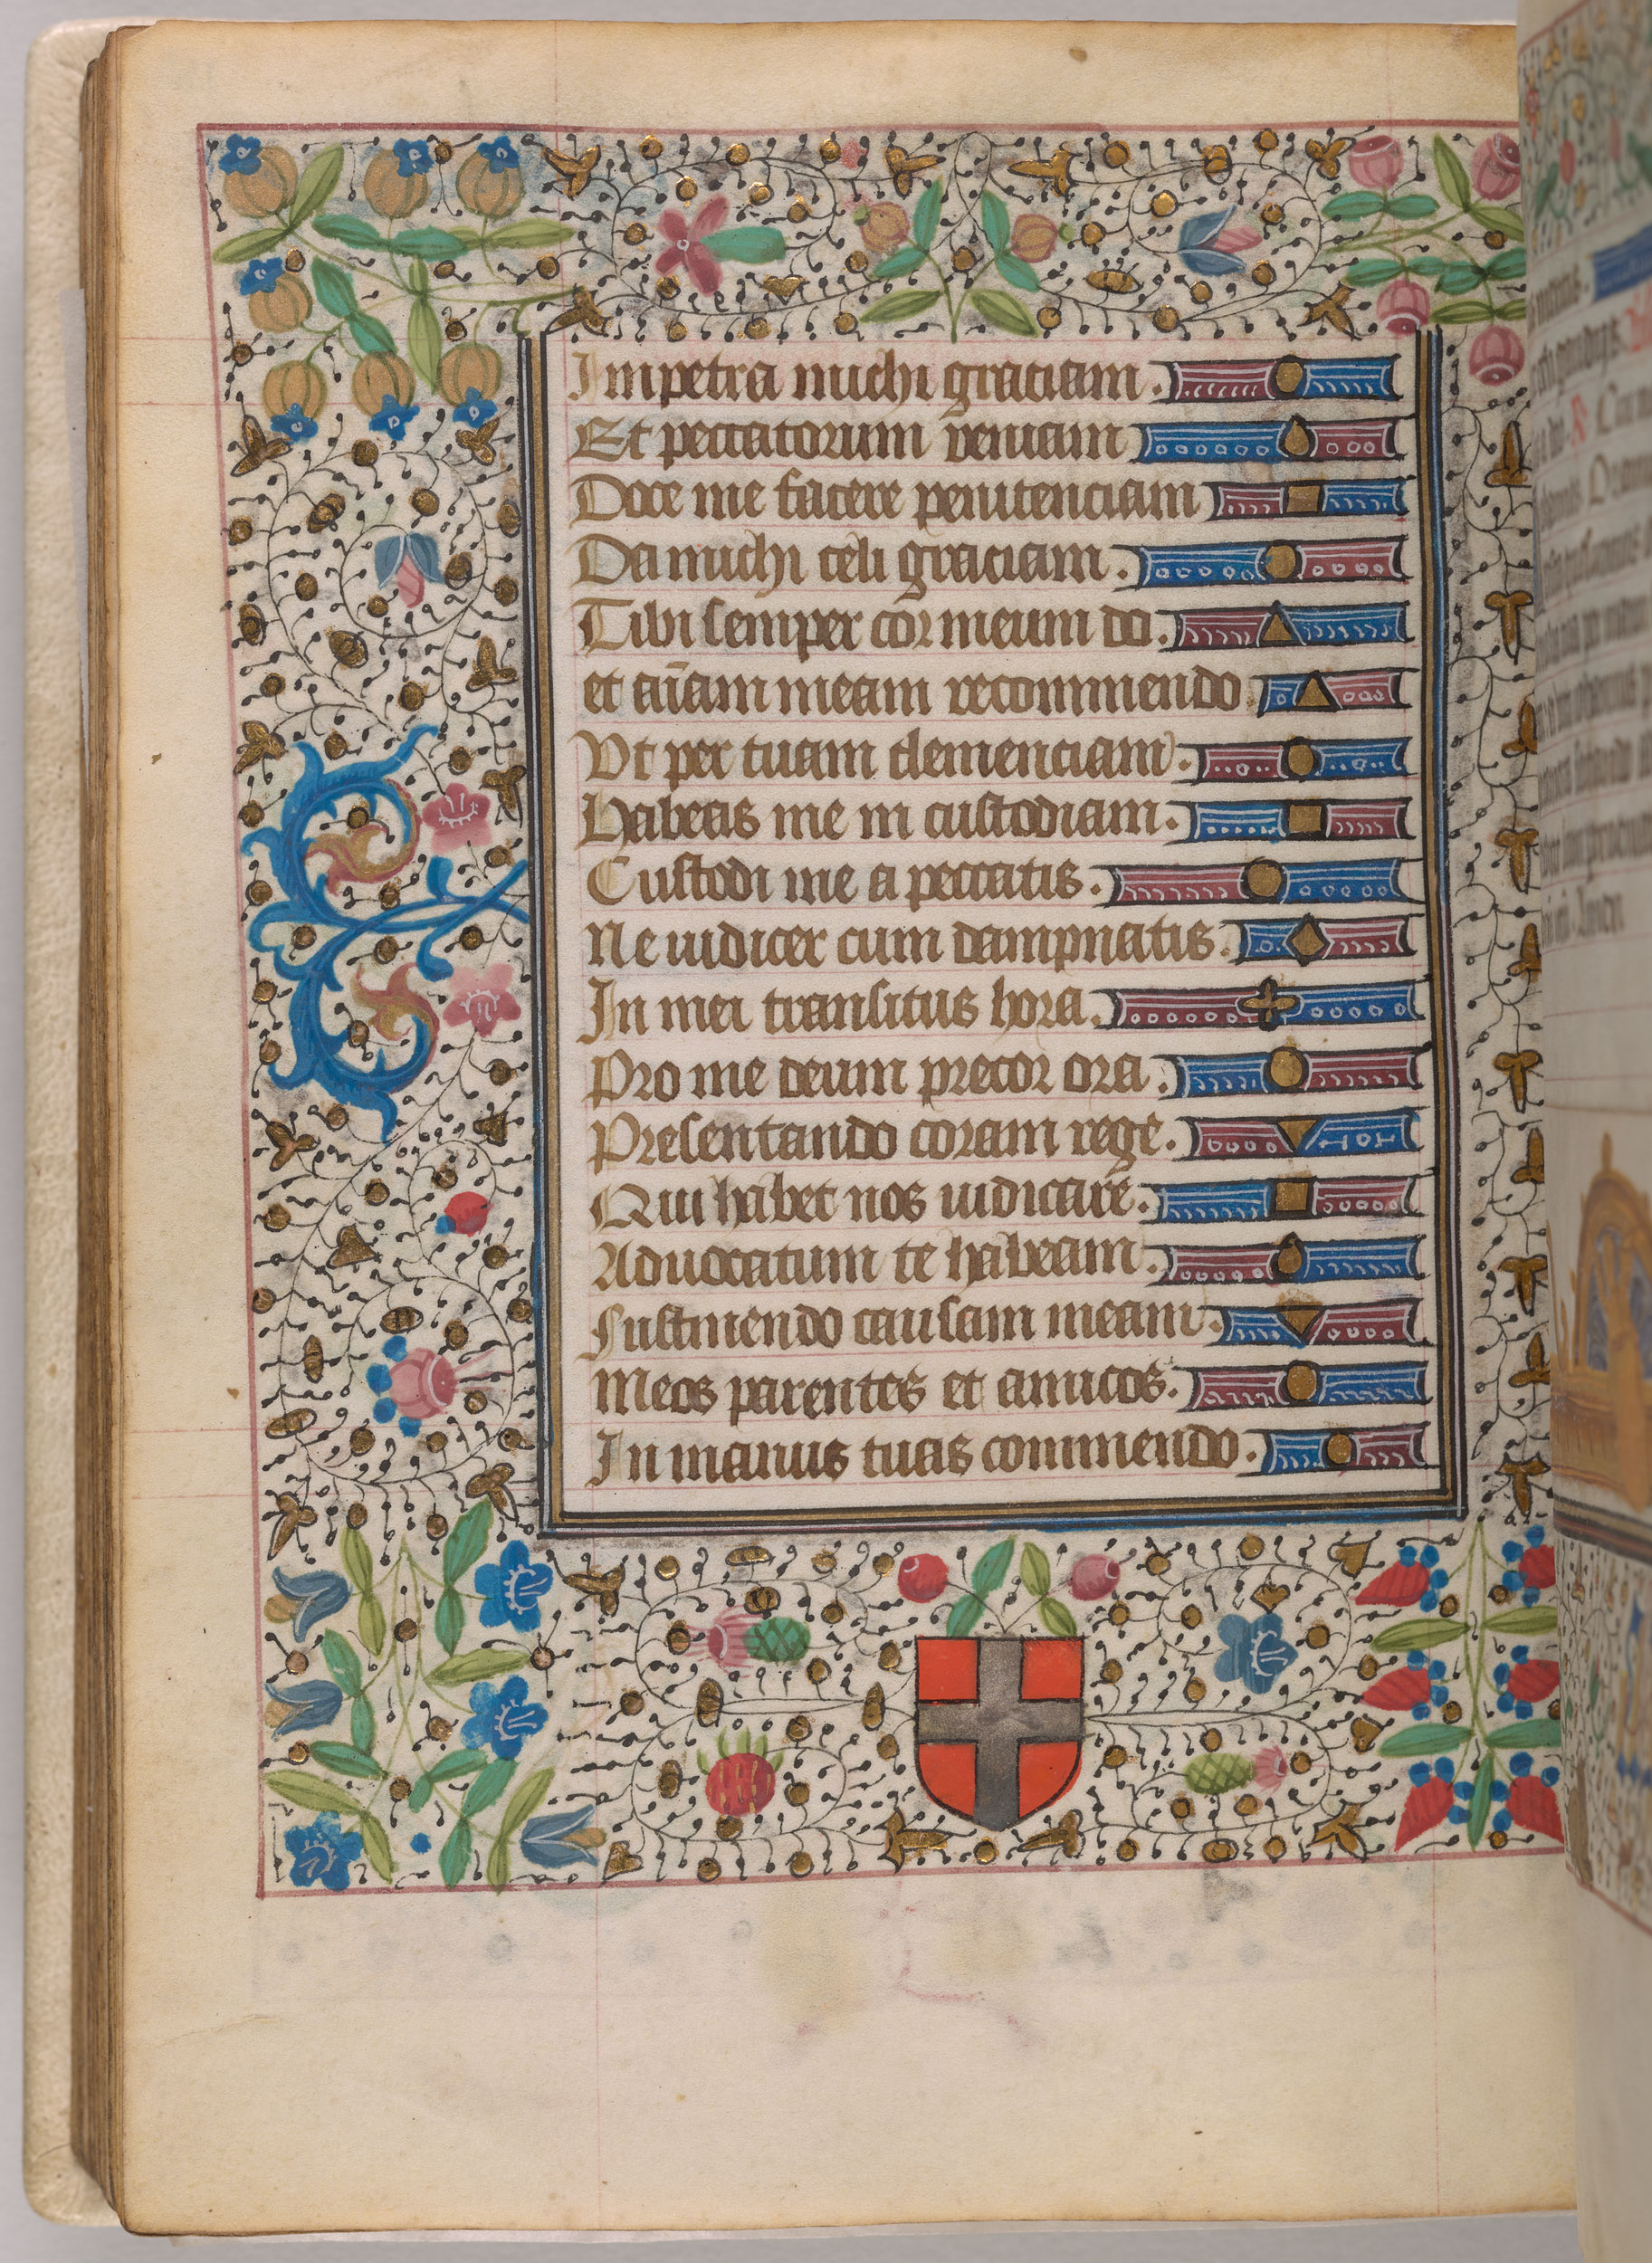 Impetra michi graciam.
Et peccatorum veniam
Doce me facere penitenciam
Da michi celi graciam.
Tibi semper cor meum do.
et aīam meam recommendo
Vt per tuam clemenciam.
Habeas me in custodiam.
Custodi me a peccatis.
Ne iudicer cum dampnatis.
In mei transitus hora.
Pro me deum precor ora.
Presentando coram rege.
Qui habet nos iudicare.
Aduocatum te habeam.
Sustinendo causam meam.
Meos parentes et amicos.
In manus tuas commendo.